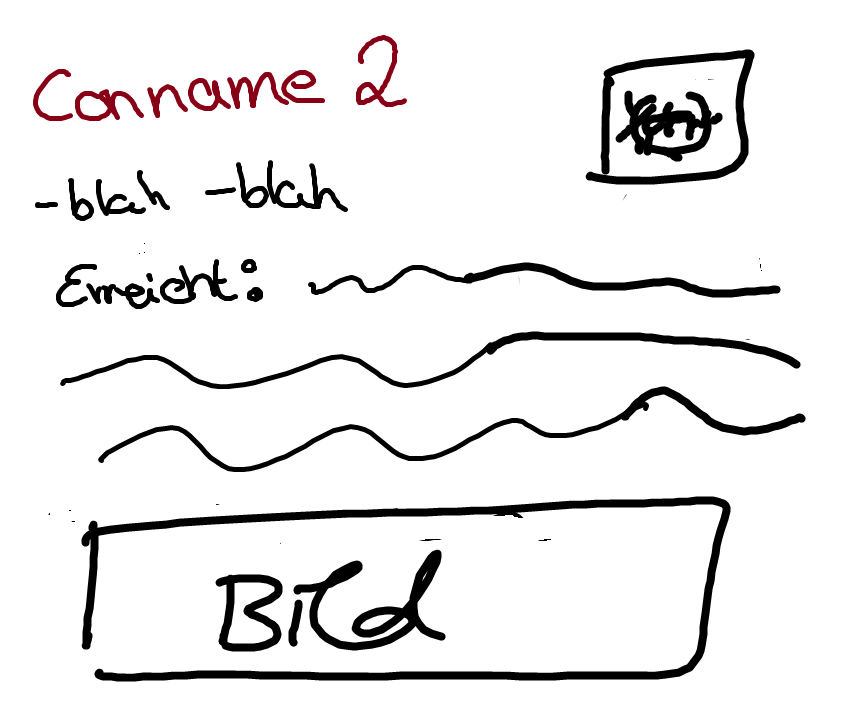 Conname 2
-blah -blah
Erreicht:
Bild